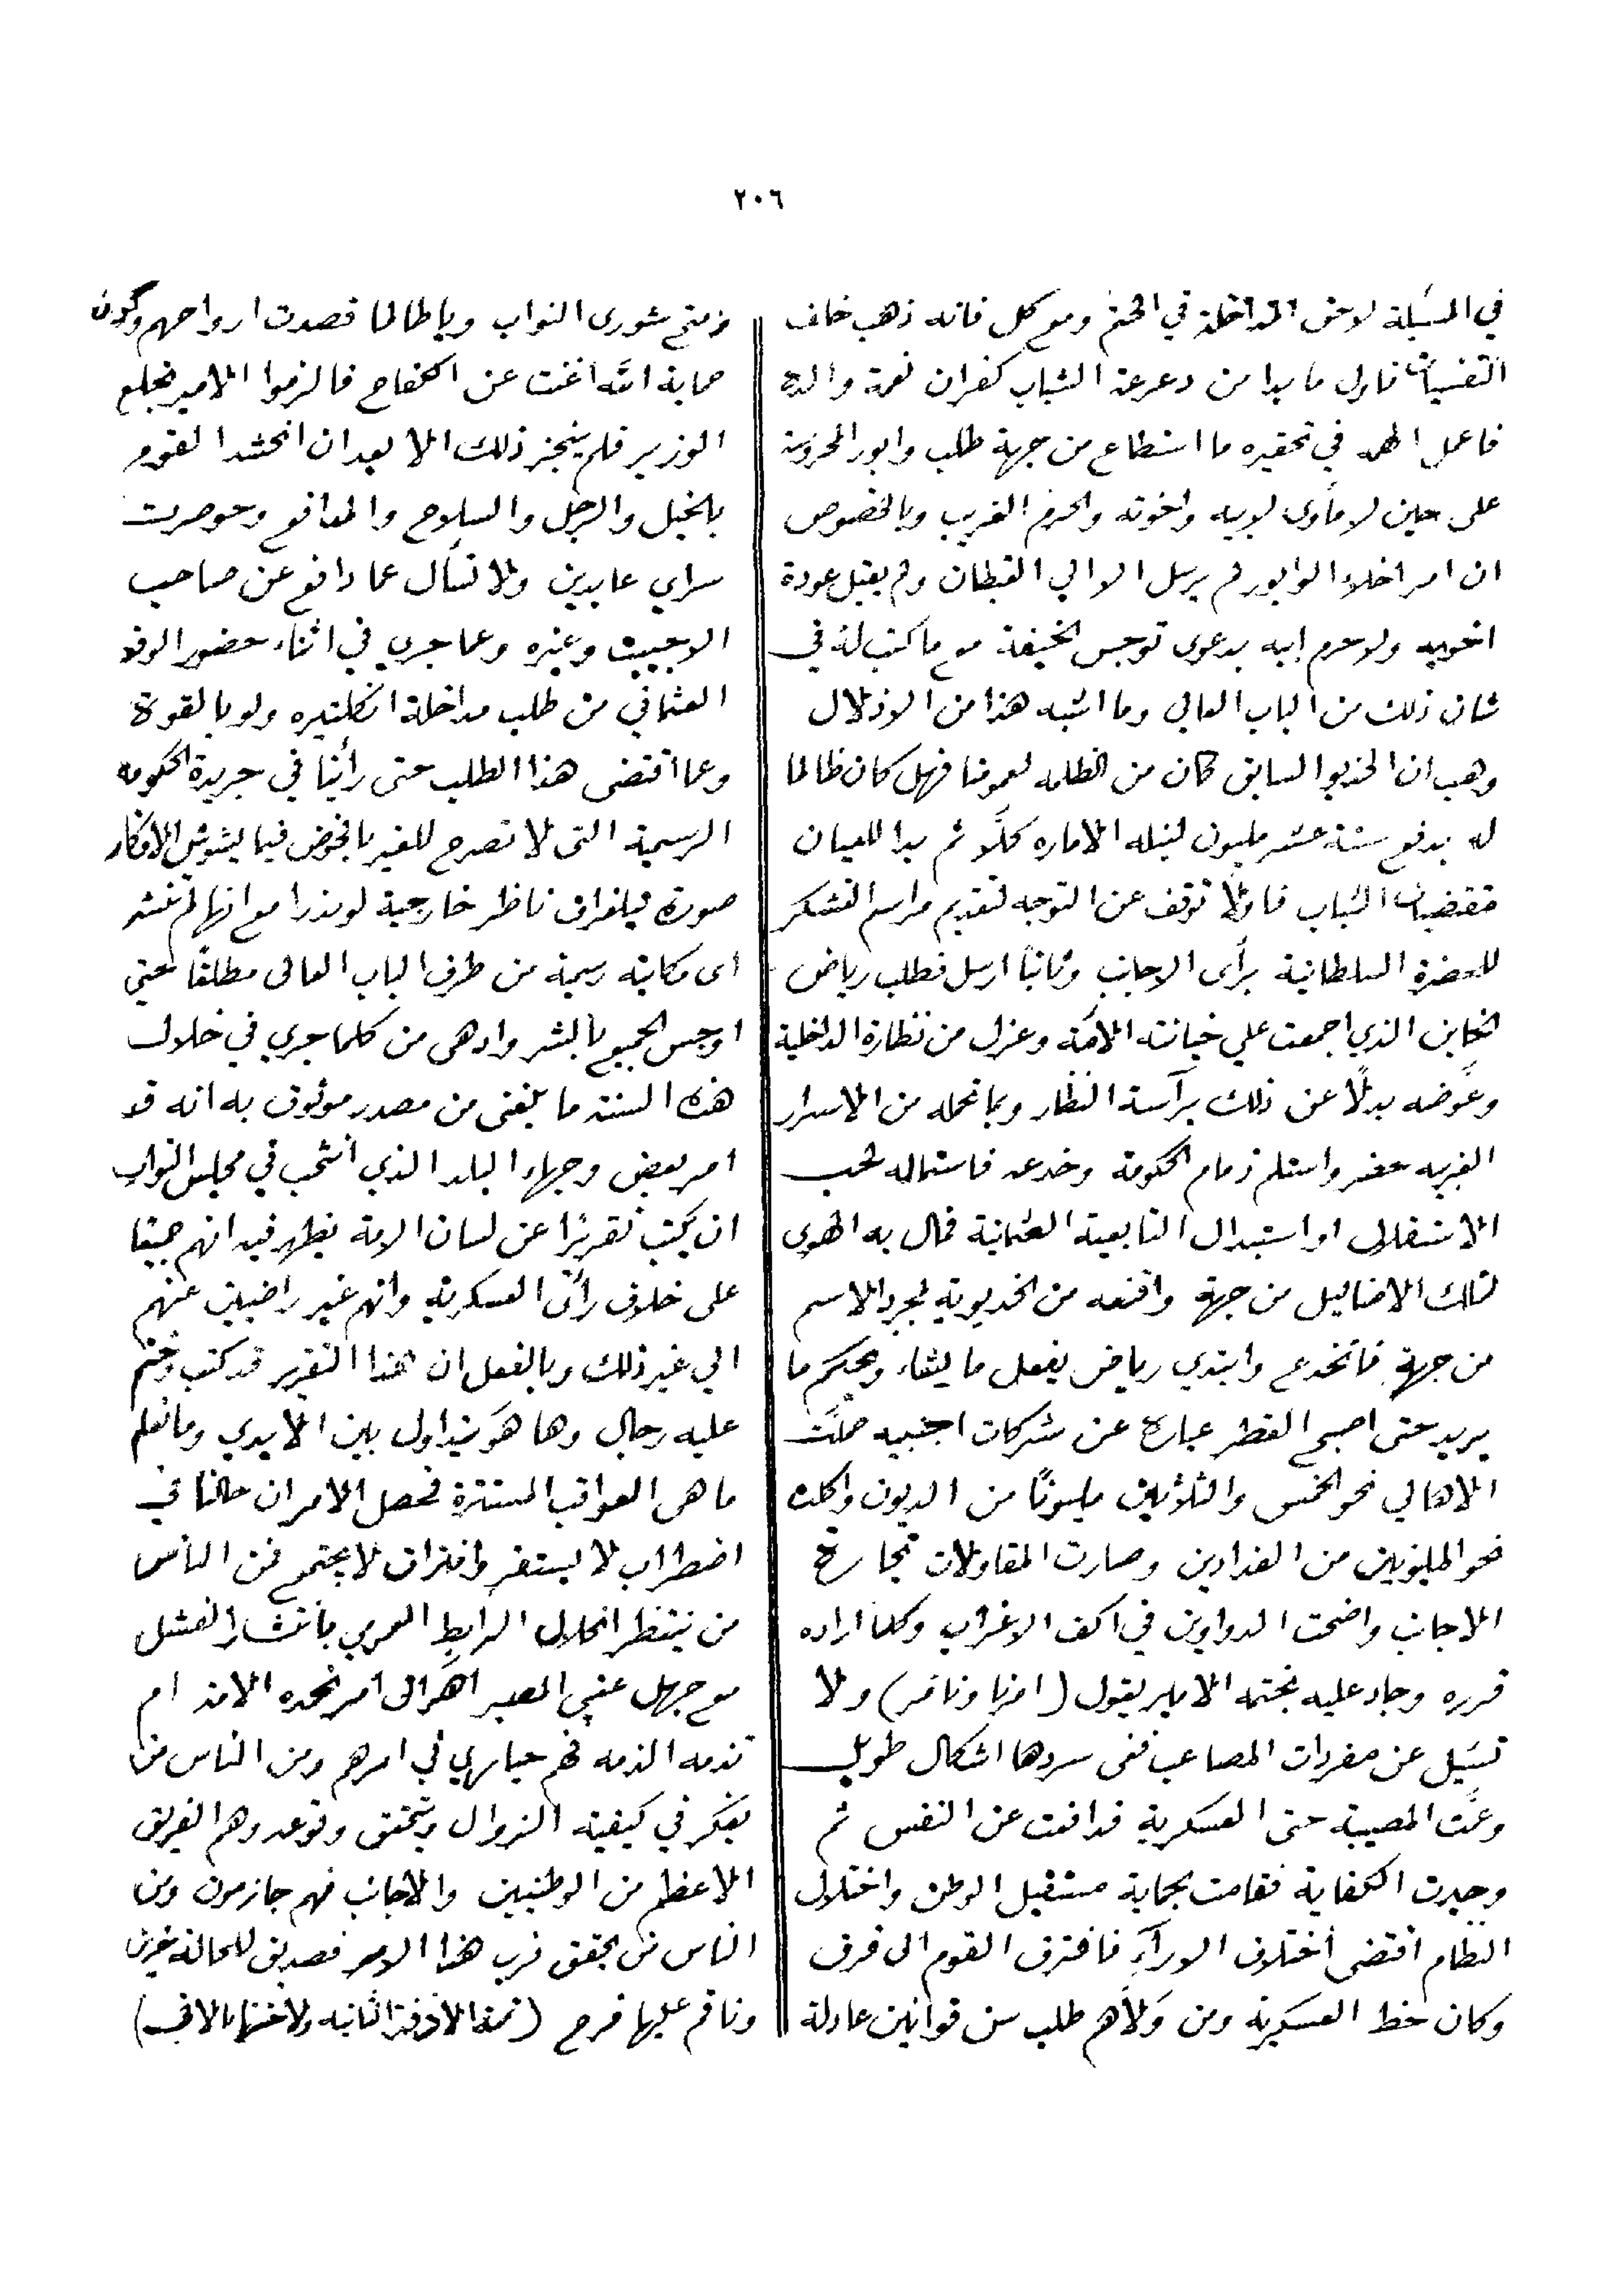 ٢٠٦
في المسئلة لاحق المداخلة في الختم ومع كل فانه ذهب خلف
النفسيات فاول ما بدا من دعرعة الشباب كفران نعمة والده
فاعمل الهمه في تحقيره ما استطاع من جهة طلب وابور المحروسة
على حين لا مأوى لابيه واخوته والحرم الغريب وبالخصوص
ان امر اخلاء الوابور لم يرسل الا الي القبطان ولم يقبل عودة
اخويه ولا حرم ابيه بدعوى توجس الخيفة مع ما كتب له في
شان ذلك من الباب العالي وما اشبه هذا من الاذلال
وهب ان الخديو السابق كان من الظلمه لعمومنا فهل كان ظالما
له بدفع ستة عشر مليون لنيله الاماره كلَّا ثم بدا للعيان
مقتضيات الشباب فاولاً توقف عن التوجه لتقديم مراسم التشكر
للحضرة السلطانية برأى الاجانب وثانياً ارسل فطلب رياض
الخاين الذي اجمعت علي خيانته الامّة وعزل من نظارة الداخلية
وعَوضه بدلاً عن ذلك برآسة النظار وبما تحمله من الاسرار
الغريبه حضر واستلم زمام الحكومة وخدعه فاستماله لحب
الاستقلال او استبدال التابعية العثمانية فمال به الهوى
لتلك الاضاليل من جهة واقنعه من الخديوية بمجرد الاسم
من جهةٍ فانخدع وابتدي رياض يفعل ما يشاء ويحكم ما
يريد حتى اصبح القطر عبارة عن شركات اجنبيه حمّلت
الاهالي نحو الخمس والثلاثين مليوناً من الديون واكلت
نحو المليونين من الفدادين وصارت المقاولات تجارة
الاجانب واضحت الدواوين في اكف الاغراب وكلما اراده
قرره وجاد عليه بختمه الامير يقول (امرنا ونامر) ولا
تسَيل عن مفردات المصاعب ففى سردها اشكال طويل
وعمَّت المصيبة حتى العسكرية فدافعت عن النفس ثم
وجدت الكفاية فقامت بحماية مستقبل الوطن واختلال
النظام اقتضى اختلاف الاورآءِ فافترق القوم الى فرق
وكان خط العسكرية ومن وَلاَّهم طلب سن قوانين عادلة
وفتح شورى النواب وياطالما قصدت ارواحهم وكون
حماية الله اغنت عن الكفاح فالزموا الامير بخلع
الوزير فلم ينجز ذلك الا بعد ان انحشد القوم
بالخيل والرجل والسلاح والمدافع وحوصرت
سراي عابدين ولا تسأل عما دافع عن صاحب
الاجيبت وغيره وعما جري في اثناء حضور الوفد
العثماني من طلب مداخلة انكلتيره ولو بالقوة
وعما اقتضى هذا الطلب حتى رأينا في جريدة الحكومه
الرسمية التى لا تصرح للغير بالخوض فيما يشوش الافكار
صورة تيلغراف ناظر خارجية لوندرا مع انها لم تنشر
اى مكاتبة رسمية من طرف الباب العالى مطلقًا حتى
اوجس الجميع بالشر وادهى من كلما جري في خلال
هذه السنة ما بلغنى من مصدر موثوق به انه قد
امر بعض وجهاء البلد الذي انتخب في مجلس النواب
ان يكتب تقريرًا عن لسان الامة يظهر فيه انهم جميعًا
على خلاف رأى العسكرية وانهم غير راضيين عنهم
الي غير ذلك وبالفعل ان هذا التقرير قد كتب وختم
عليه رجال وها هوَ يتداول بين الايدي وما نعلم
ما هى العواقب المستترة فحصل الامر ان حالنا في
اضطراب لا يستقر وافتراق لا يجتمع فمن الناس
من ينتظر انحلال الرابط العمومي بانتشار الفشل
مع جهل عقبي المصير اهَوَ الى امر تحمده الامة ام
تذمه الذمه فهم حياري في امرهم ومن الناس من
يفكر في كيفية الزوال وتحقق وتوعد وهم الفريق
الاعظم من الوطنيين والاجانب فهم جازمون ومن
الناس من يحقق قرب هذا الامر فصديق للحالة حزين
وناقم عليها فرح (تمة الازفة الثانيه ولاختها بالاتي)